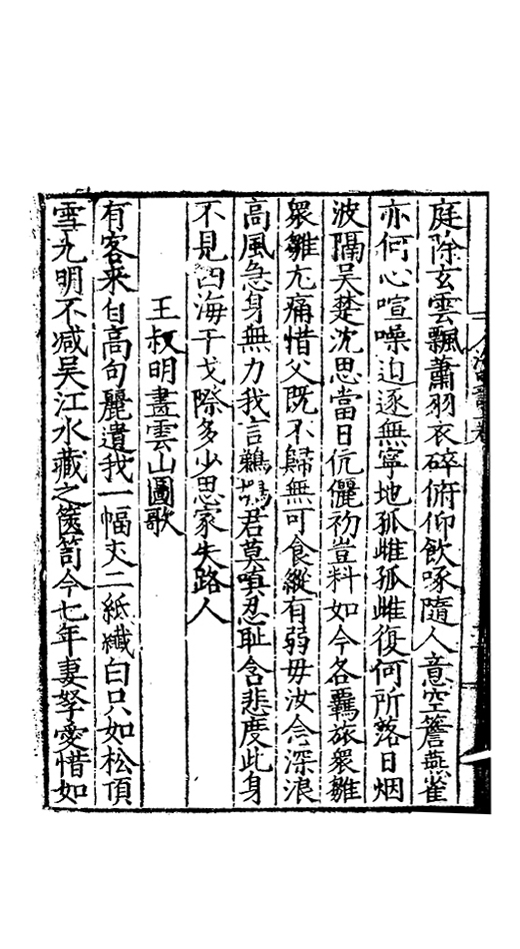 庭除玄雲飄蕭羽衣碎俯仰飲啄隨人意空簷燕雀
亦何心喧噪迫逐無寧地孤雌孤雌復何所落日烟
波隔吳楚沈思當日伉儷初豈料如今各羇旅衆雛
衆雛尢痛惜父既不歸無可食縱有弱毋汝念深浪
高風急身無力我言鵜鶘君莫嗔忍耻含悲度此身
不見四海干戈際多少思家失路人
王叔明畫雲山圖歌
有客来自高句麗遺我一幅丈二紙纖白只如松頂
雪光明不减吴江水藏之篋笥今七年妻孥愛惜如